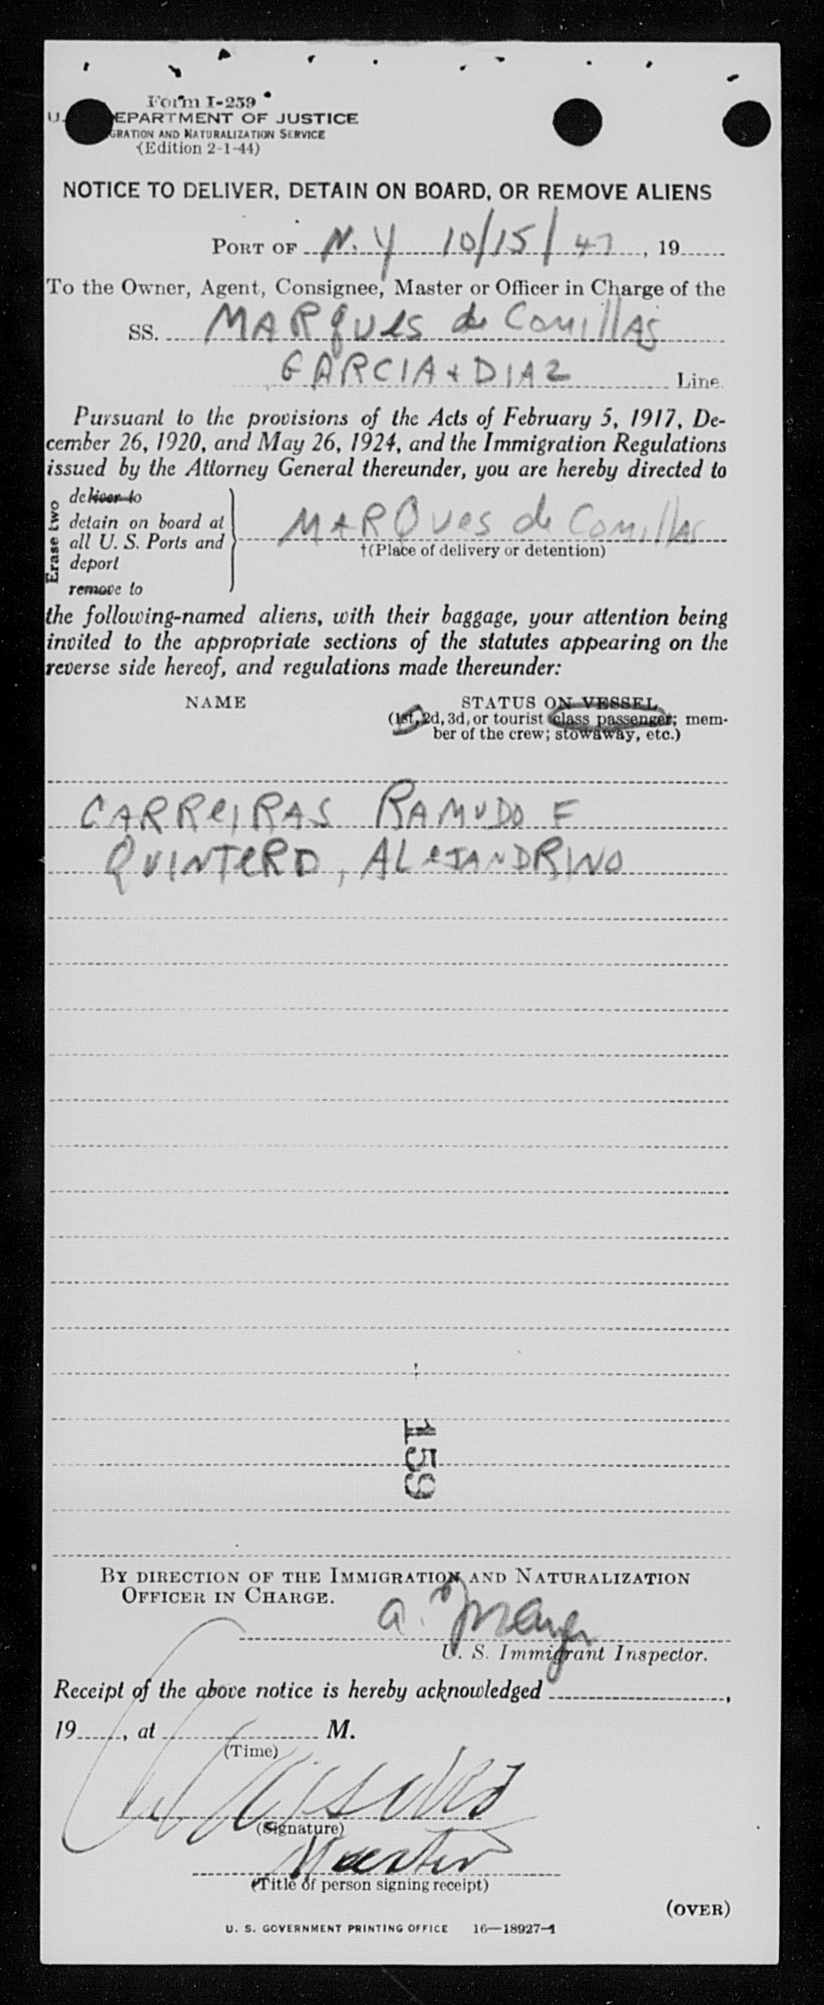 Form I-259
U. DEPARTMENT OF JUSTICE
GRATION AND NATURALIZATION SERVICE
(Edition 2-1-44)
NOTICE TO DELIVER, DETAIN ON BOARD, OR REMOVE ALIENS
PORT OF N.Y 10/15/47, 19
To the Owner, Agent, Consignee, Master or Officer in Charge of the
SS. MARques de Comillas
GARCIA & DIAZ Line.
Pursuant to the provisions of the Acts of February 5, 1917, De-
cember 26, 1920, and May 26, 1924, and the Immigration Regulations
issued by the Attorney General thereunder, you are hereby directed to
Erase two
deliver to
detain on board at
all U. S. Ports and
deport
remove to
MARQues de Comillas
†(Place of delivery or detention)
the following-named aliens, with their baggage, your attention being
invited to the appropriate sections of the statutes appearing on the
reverse side hereof, and regulations made thereunder:
NAME STATUS ON VESSEL
(1st, 2d, 3d, or tourist class passenger; mem-
ber of the crew; stowaway, etc.)
CARReIRAS RAMUDO E
QUINTeRO, ALeJANDRINO
159
BY DIRECTION OF THE IMMIGRATION AND NATURALIZATION
OFFICER IN CHARGE.
a.
U. S. Immigrant Inspector.
Receipt of the above notice is hereby acknowledged ,
19 , at M.
(Time)
(Signature)
Master
(Title of person signing receipt)
(OVER)
U. S. GOVERNMENT PRINTING OFFICE 16—18927-1